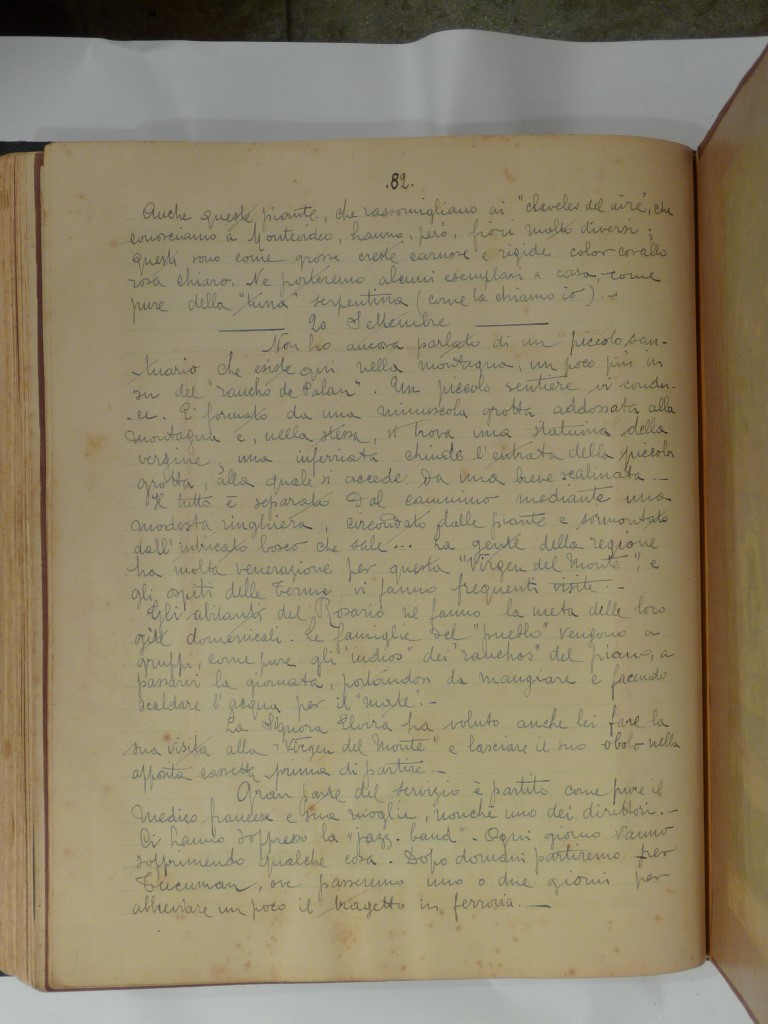 .82.
Anche queste piante, che rassomigliano ai "claveles del aire", che
conosciamo a Montevideo, hanno, però, fiori molto diversi;
questi sono come grosse creste carnose e rigide color corallo
rosa chiaro. Ne porteremo alcuni esemplari a casa, come
pure della "tuna" serpentina (come la chiamo io). -
20 Settembre
Non ho ancora parlato di un piccolo san-
tuario che esiste qui nella montagna, un poco più in
su del "rancho de Palau". Un piccolo sentiere vi condu-
-ce. E' formato da una minuscola grotta addossata alla
montagna e, nella stessa, si trova una statuina della
vergine. una inferriata chiude l'entrata della piccola
grotta, alla quale si accede da una breve scalinata. -
Il tutto è separato dal cammino mediante una
modesta ringhiera, circondato dalle piante e sormontato
dall'intricato bosco che sale... La gente della regione
ha molta venerazione per questa "Virgen del Monte", e
gli ospiti delle Terme vi fanno frequenti visite. -
Gli abitanti del Rosario ne fanno la meta delle loro
gite domenicali. Le famiglie del "pueblo" vengono a
gruppi, come pure gli "indios" dei "ranchos" del piano, a
passarvi la giornata, portandosi da mangiare e facendo
scaldare l'acqua per il "mate". -
La Signora Elvira ha voluto anche lei fare la
sua visita alla "Virgen del Monte" e lasciare il suo obolo nella
apposita cassetta prima di partire. -
Gran parte del servizio è partito come pure il
Medico francese e sua moglie, nonchè uno dei direttori. -
Ci hanno soppresso la "jazz-band". Ogni giorno vanno
sopprimendo qualche cosa. Dopo domani partiremo per
Tucuman, ove passeremo uno o due giorni per
abbreviare un poco il tragetto in ferrovia. -